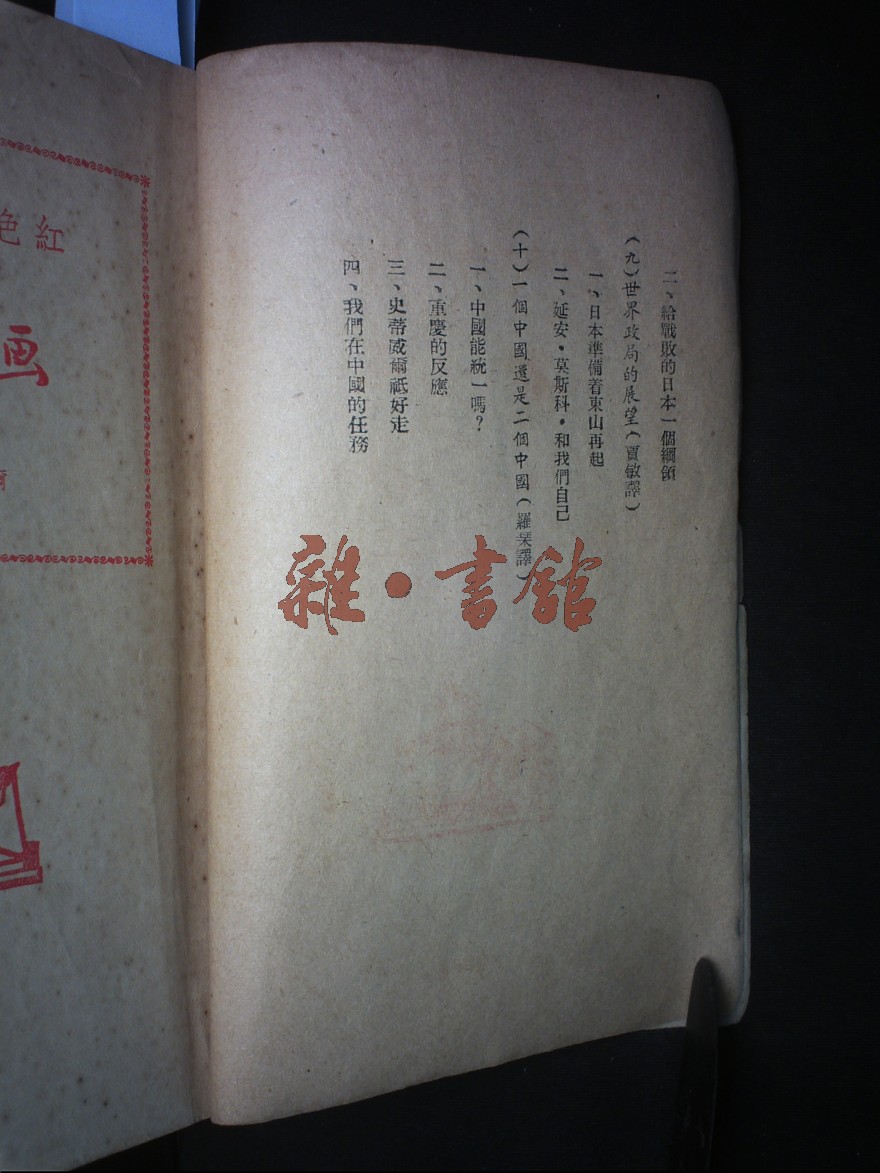 二、給戰敗的日本一個綱領
（九）世界政局的展望（賈敏譯）
一、日本準備着東山再起
二、延安・莫斯科・和我們自己
（十）一個中國還是二個中國（羅栞譯）
一、中國能統一嗎？
二、重慶的反應
三、史蒂威爾祗好走
四、我們在中國的任務
雜・書館
紅色
画